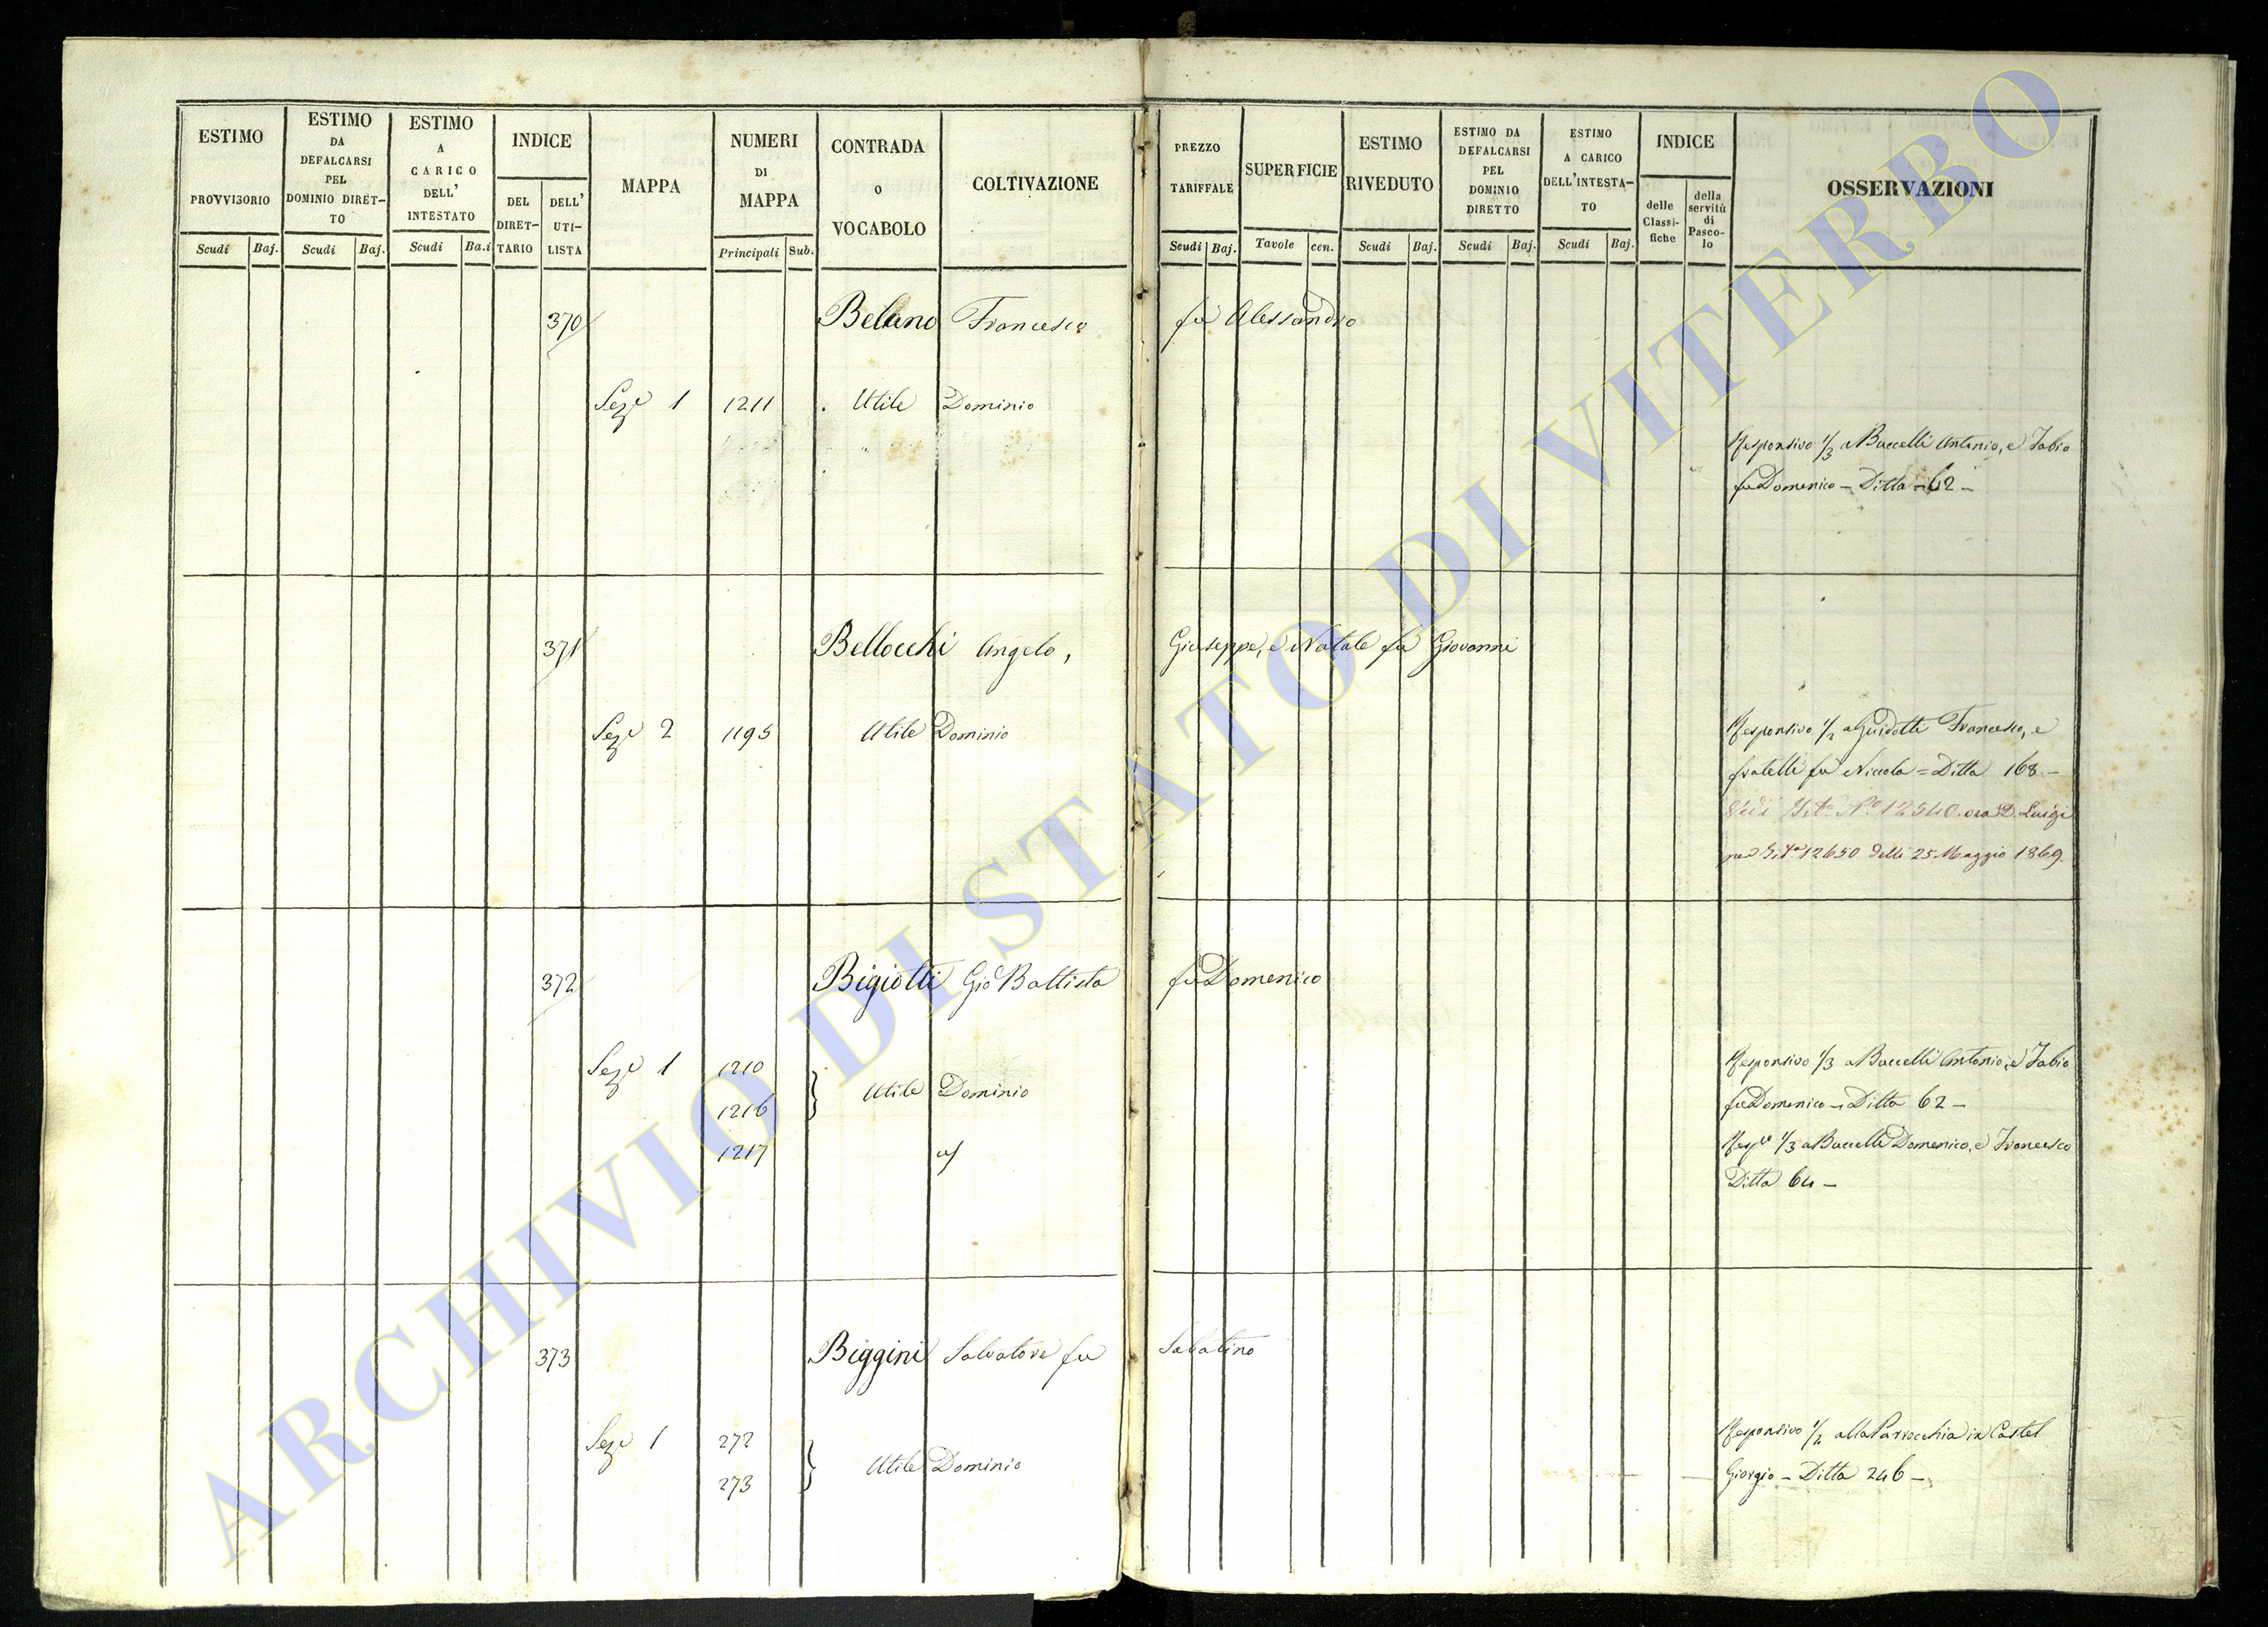 ESTIMO PROVVISORIO
ESTIMO DA DEFALCARSI PEL DOMINIO DIRET-TO
ESTIMO A CARICO DELL' INTESTATO
INDICE
DEL DIRET-TARIO
DELL' UTI-LISTA
MAPPA
NUMERI DI MAPPA
CONTRADA O VOCABOLO
COLTIVAZIONE
PREZZO TARIFFALE
SUPERFICIE
ESTIMO RIVEDUTO
ESTIMO DA DEFALCARSI PEL DOMINIO DIRETTO
ESTIMO A CARICO DELL'INTESTA-TO
INDICE
delle Classi-fiche
della servitù di Pasco-lo
OSSERVAZIONI
Scudi Baj. Scudi Baj. Scudi Ba.i Principali Sub. Scudi Baj. Tavole cen. Scudi Baj. Scudi Baj. Scudi Baj.
370 Belano Francesco fu Alessandro
Seze 1 1211 Utile Dominio
Responsivo 1/3 a Buccelli Antonio, e Fabio
fu Domenico - Ditta - 62 -
371 Bellocchi Angelo, Giuseppe, e Natale fu Giovanni
Seze 2 1195 Utile Dominio
Responsivo 1/2 a Guidotti Francesco, e
fratelli fu Niccola = Ditta 168 -
No 12540 ora D. Luigi
12650 delli 25 Maggio 1869.
372 Bigiotti Gio Battista fu Domenico
Seze 1 1210
1216 } Utile Dominio
1217
Responsivo 1/3 a Buccelli Antonio, e Fabio
fu Domenico - Ditta 62 -
Respvo 1/3 a Buccelli Domenico, e Francesco
Ditta 64 -
373 Biggini Salvatore fu Sabatino
Seze 1 272
273 } Utile Dominio
Responsivo 1/2 alla Parrocchia in Castel
Giorgio - Ditta 246 -
ARCHIVIO DI STATO DI VITERBO